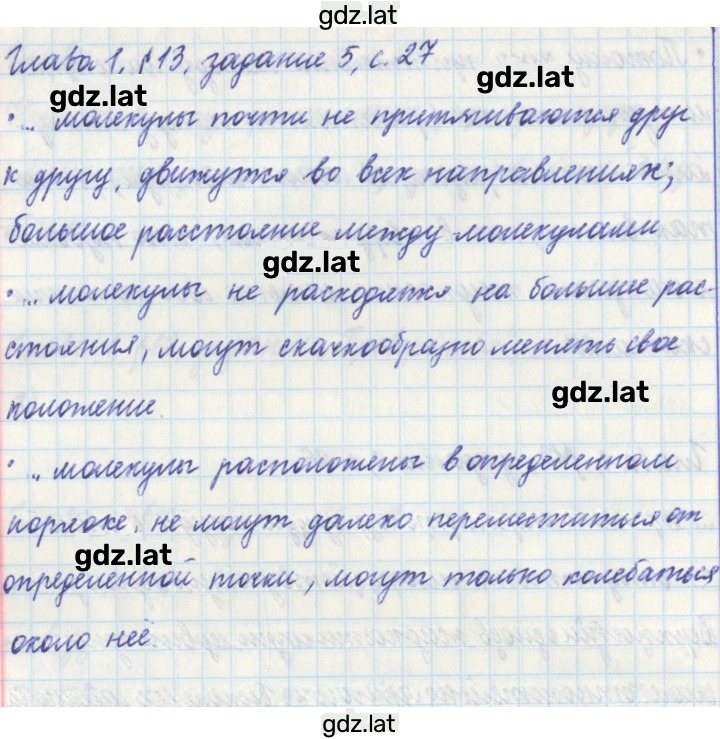 gdz.lat
Глава 1, §13, задание 5, с. 27
gdz.lat
gdz.lat
• ... молекулы почти не притягиваются друг
к другу, движутся во всех направлениях;
большое расстояние между молекулами
gdz.lat
• ... молекулы не расходятся на большие рас-
стояния, могут скачкообразно менять свое
gdz.lat
положение.
• ... молекулы расположены в определенном
порядке, не могут далеко переместиться от
gdz.lat
определенной точки, могут только колебаться
около неё
gdz.lat